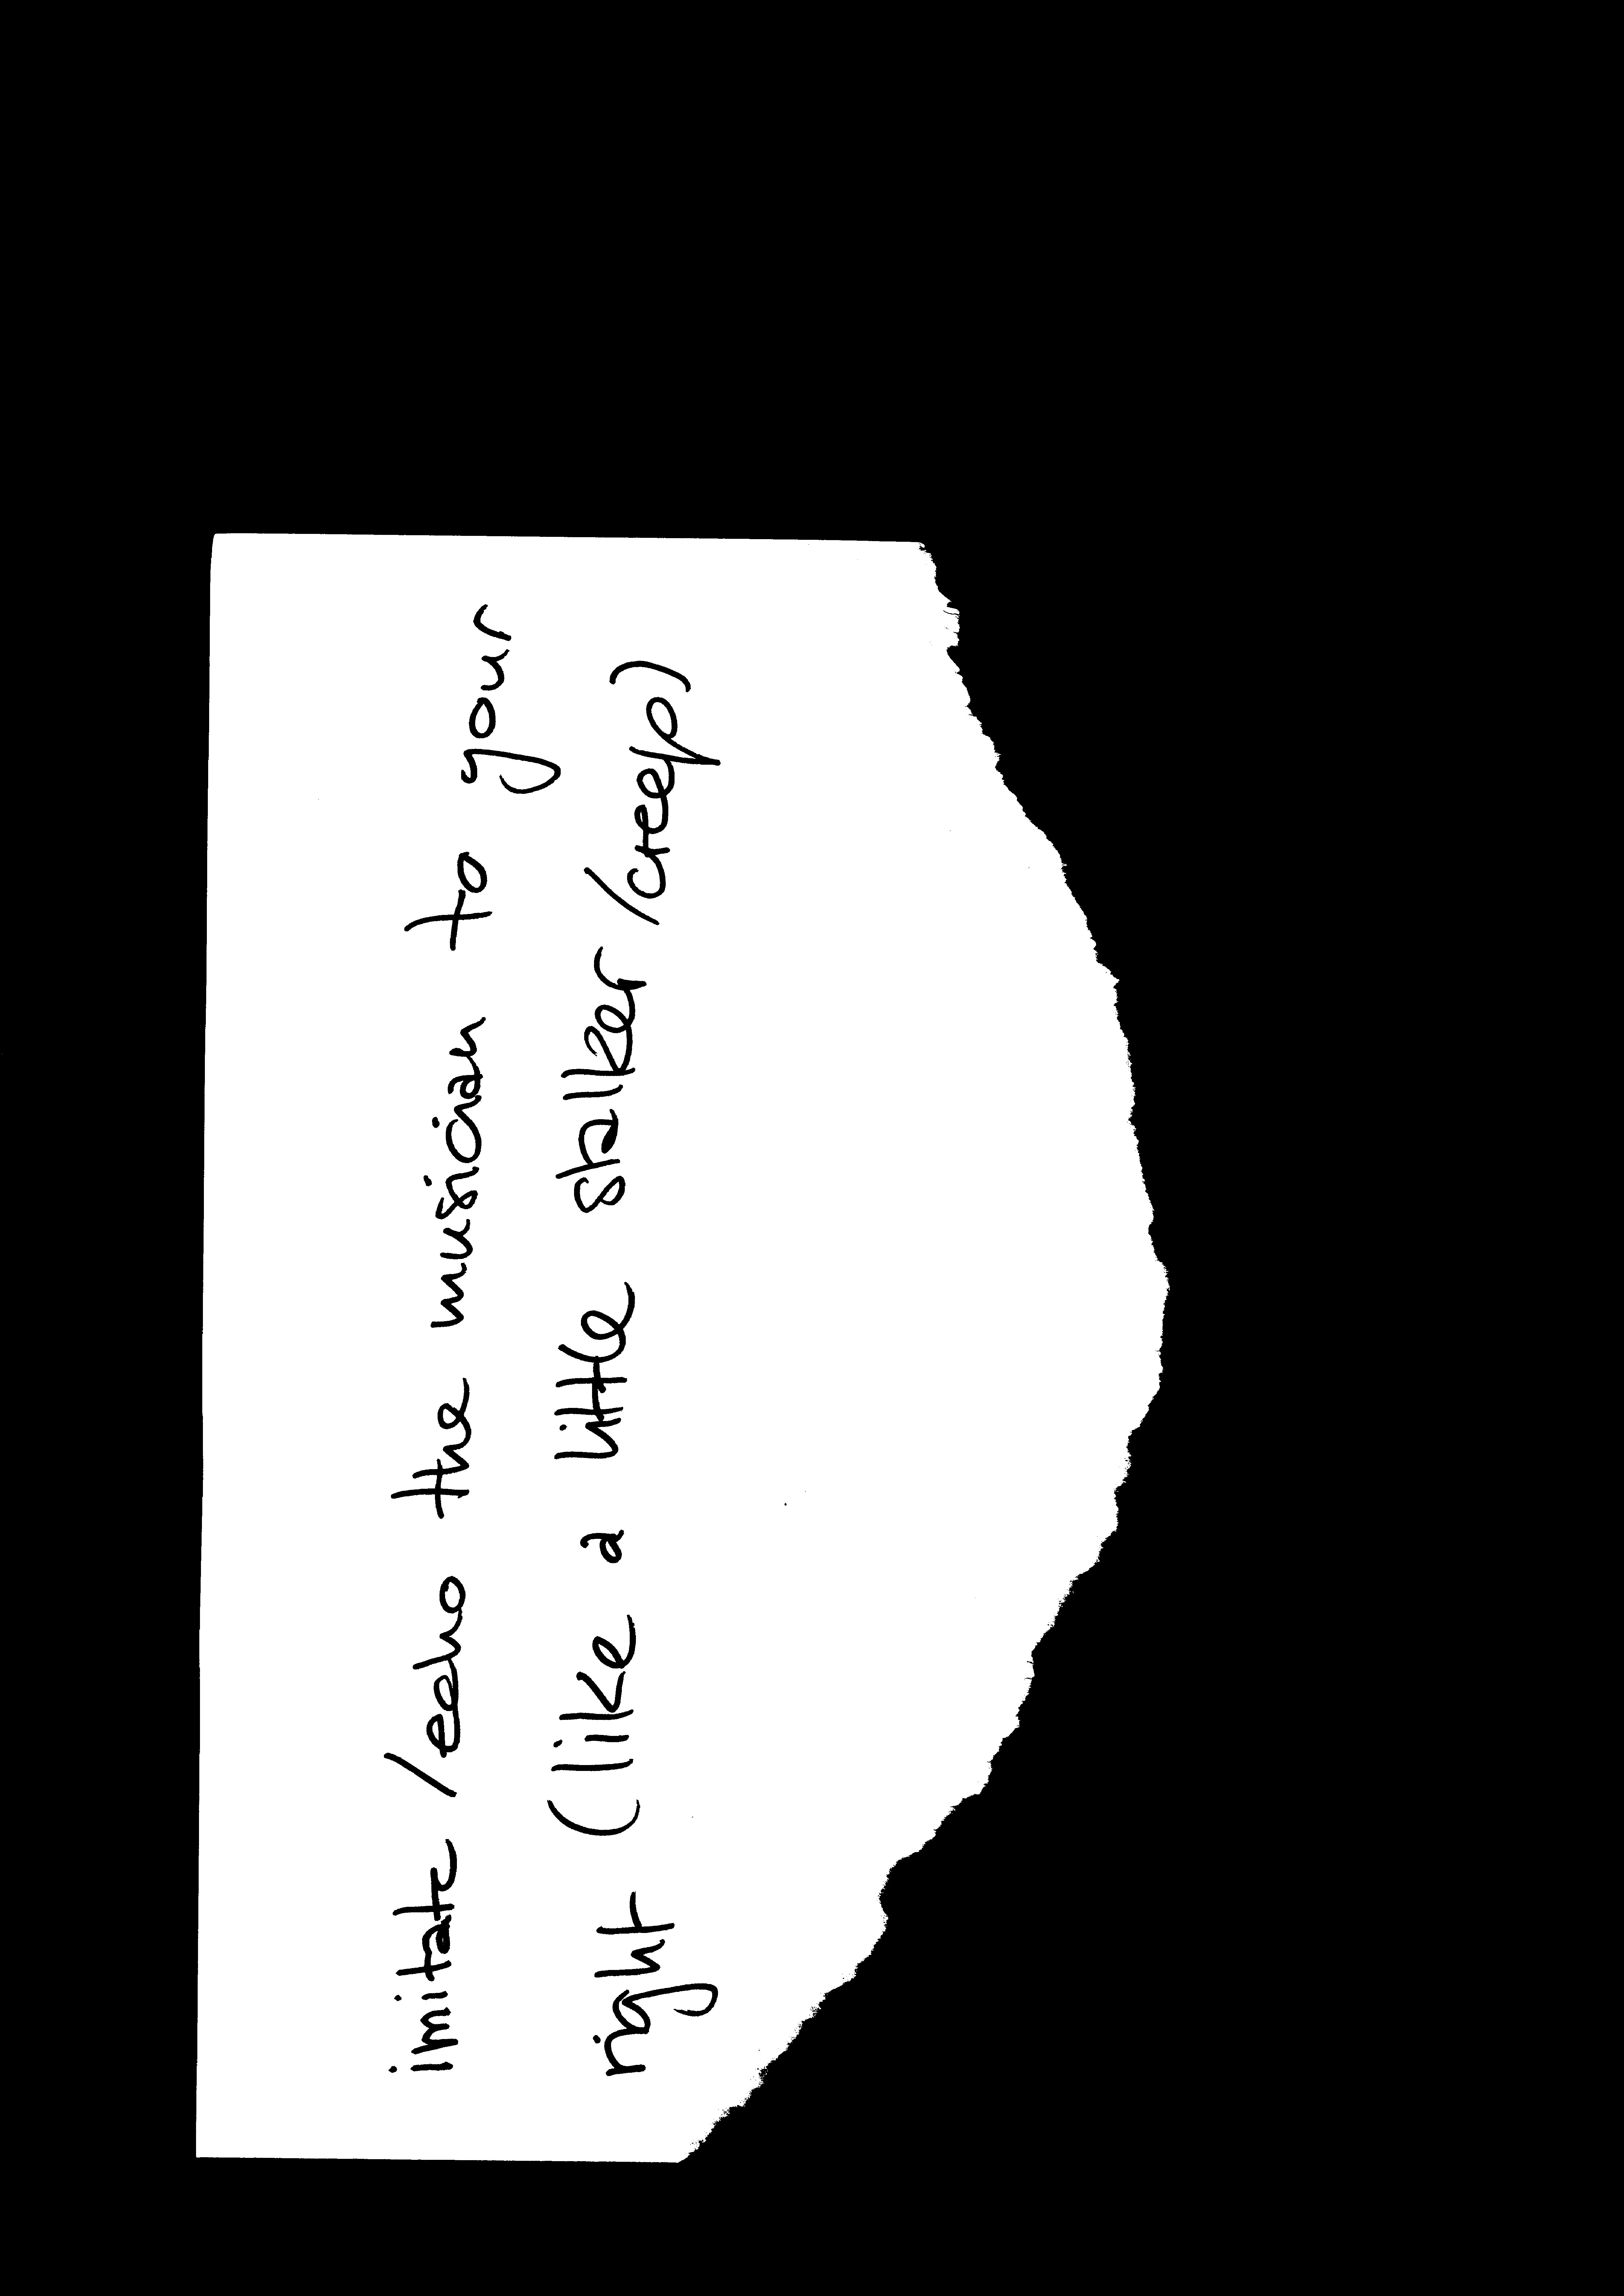 imitate /echo the musician to your
right (like a little stalker/creep)